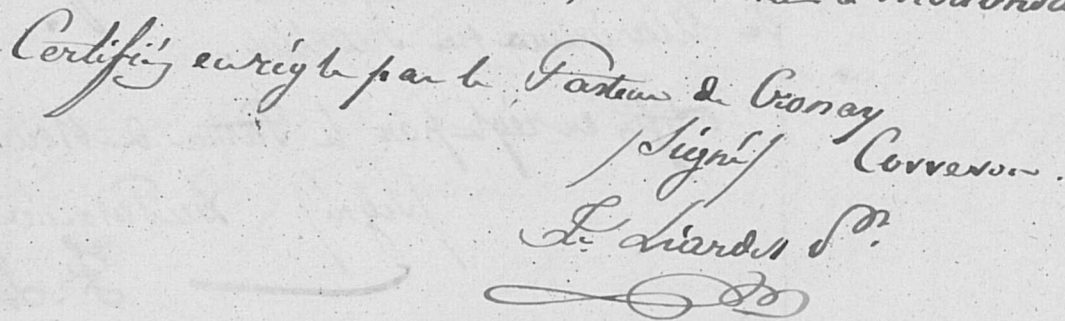 Certifiés en règle par le Pasteur de Cronay
/Signé/ Correvon.
Fs Liardet Pr.